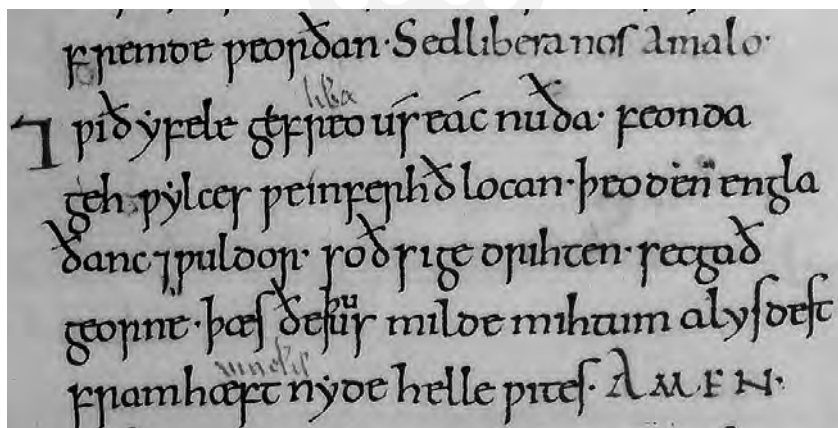 fremde ƿeorðan· Sed libera nos a malo·
liƀa
⁊ ƿið ẏfele gefreo us eác nu ða· feonda
geh ƿẏlces ƿe in ferhð locan· þeoden engla
ðanc ⁊ ƿuldor· soð sige drihten· secgað
georne· þæs ðe þu us milde mihtum alysdest
fram hæft nẏde helle ƿites· AMEN·